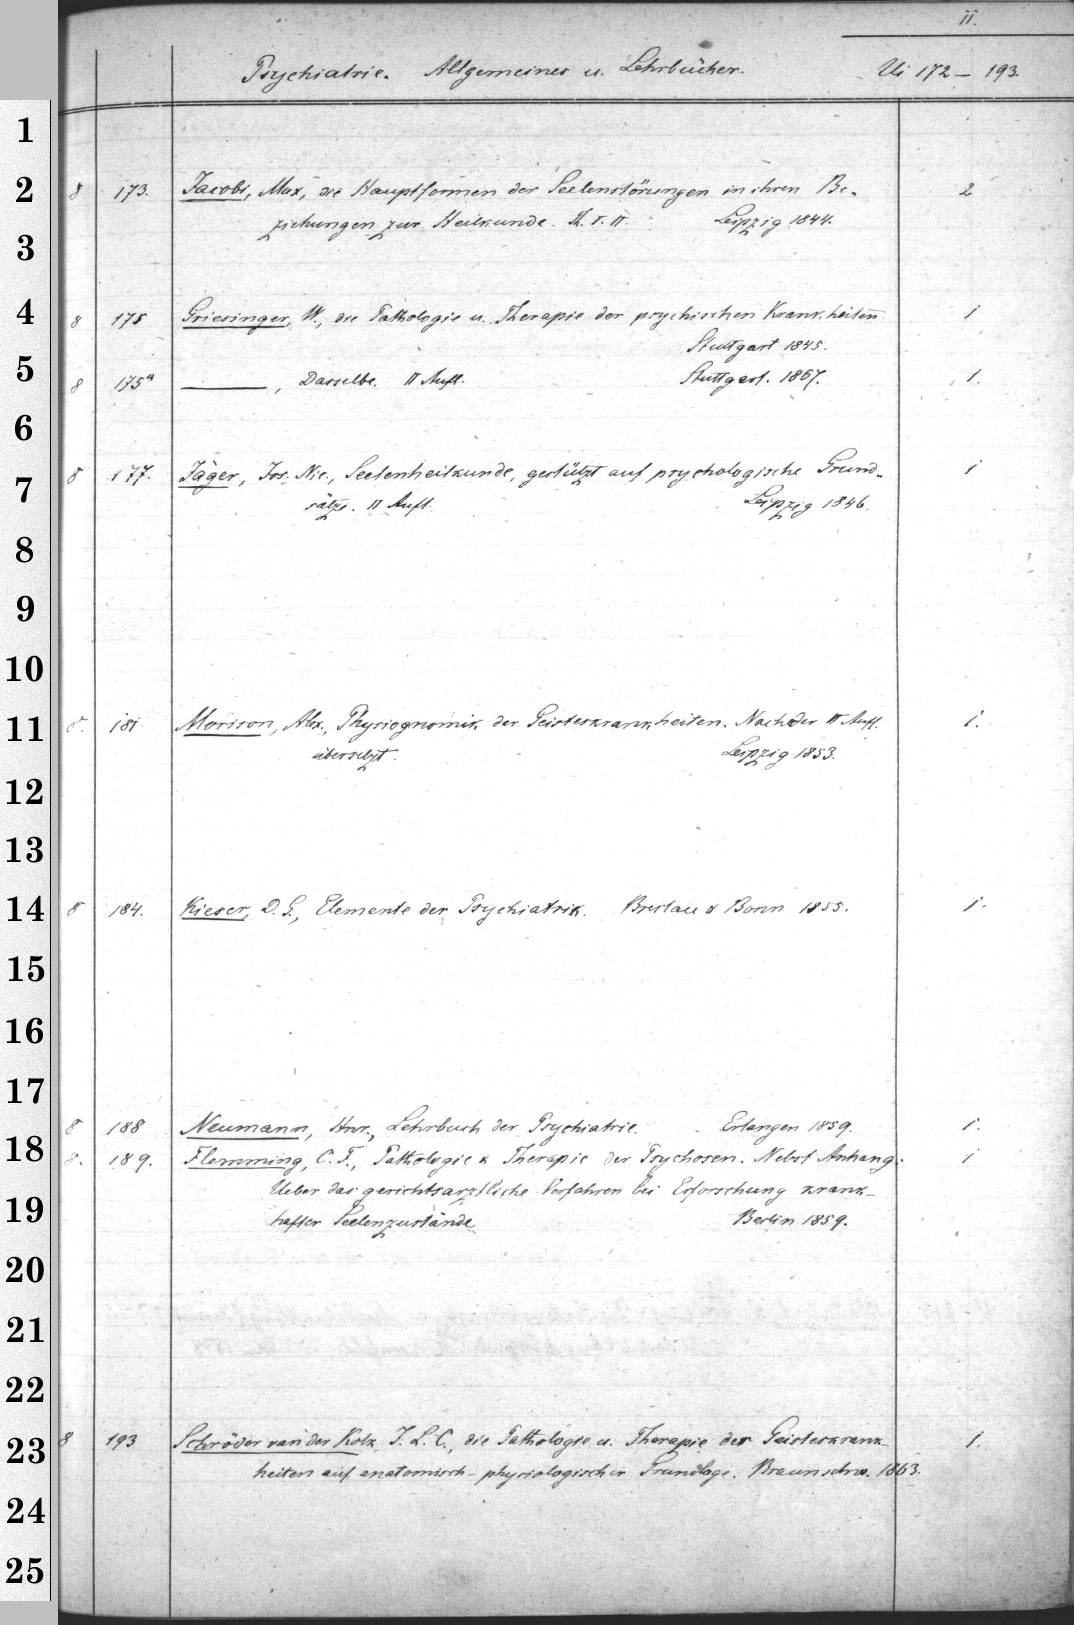 II.
Psychiatrie. Allgemeines u. Lehrbücher. Ui 172 – 193.
1
2 8 173. Jacobi, Max, die Hauptformen der Seelenstörungen in ihren Be- 2
ziehungen zur Heilkunde. Th. I. II. Leipzig 1844.
3
4 8 175 Griesinger, W., die Pathologie u. Therapie der psychischen Krankheiten 1
Stuttgart 1845.
5 8 175a ———, Dasselbe. II Aufl. Stuttgart. 1867. 1.
6
7 8 177. Jäger, Jos. Nic., Seelenheilkunde, gestützt auf psychologische Grund- 1
sätze. II Aufl. Leipzig 1846.
8
9
10
11 8. 181 Morison, Alex., Physiognomik der Geisteskrankheiten. Nach der II Aufl. 1.
übersetzt. Leipzig 1853.
12
13
14 8 184. Kieser, D. G., Elemente der Psychiatrik. Breslau & Bonn 1855. 1.
15
16
17
8 188 Neumann, Hnr., Lehrbuch der Psychiatrie. Erlangen 1859. 1.
18 8. 189. Flemming, C. F., Pathologie & Therapie der Psychosen. Nebst Anhang: 1
19 Ueber das gerichtsarztliche Verfahren bei Erforschung krank-
hafter Seelenzustände Berlin 1859.
20
21
22
23 8 193 Schröder van der Kolk, J. L. C., die Pathologie u. Therapie der Geisteskrank- 1.
heiten auf anatomisch-physiologischer Grundlage. Braunschw. 1863.
24
25